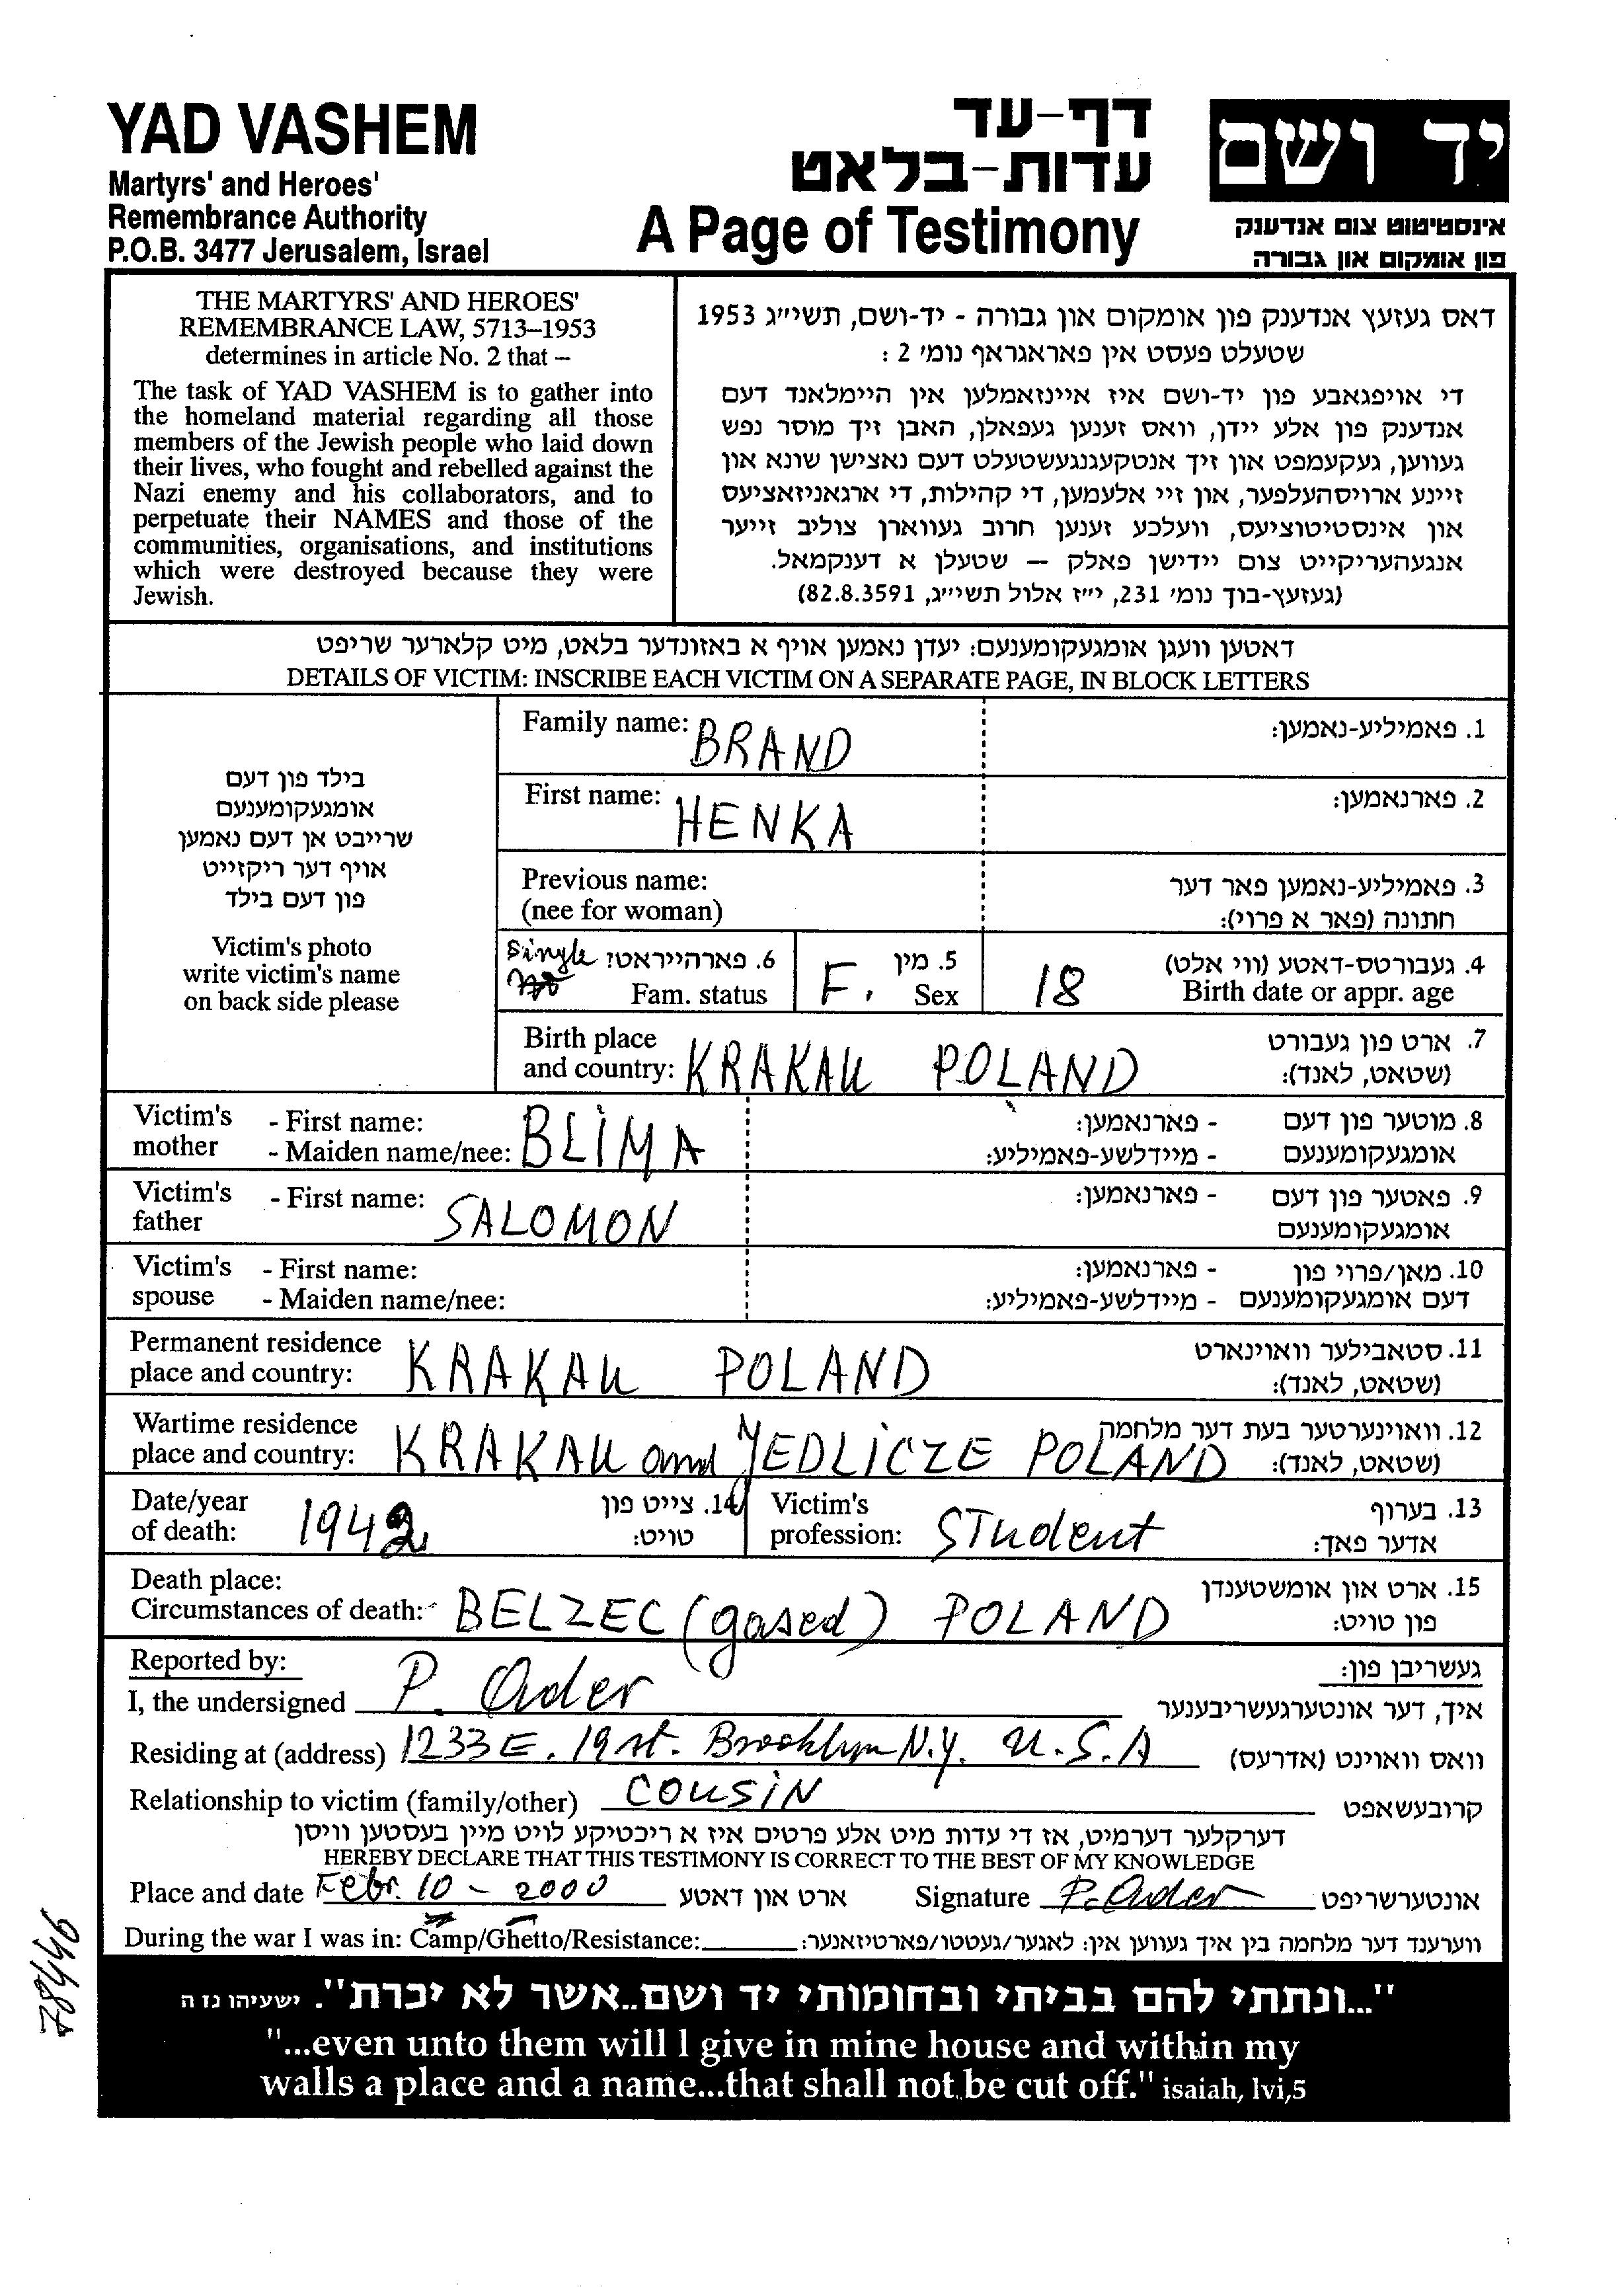 YAD VASHEM
Martyrs' and Heroes'
Remembrance Authority
P.O.B. 3477 Jerusalem, Israel
דף-עד
עדות-בלאט
A Page of Testimony
יד ושם
אינסטיטוט צום אנדענק
פון אומקום און גבורה
THE MARTYRS' AND HEROES'
REMEMBRANCE LAW, 5713–1953
determines in article No. 2 that –
The task of YAD VASHEM is to gather into
the homeland material regarding all those
members of the Jewish people who laid down
their lives, who fought and rebelled against the
Nazi enemy and his collaborators, and to
perpetuate their NAMES and those of the
communities, organisations, and institutions
which were destroyed because they were
Jewish.
דאס געזעץ אנדענק פון אומקום און גבורה - יד-ושם, תשי״ג 1953
שטעלט פעסט אין פאראגראף נומ׳ 2 :
די אויפגאבע פון יד-ושם איז איינזאמלען אין היימלאנד דעם
אנדענק פון אלע יידן, וואס זענען געפאלן, האבן זיך מוסר נפש
געווען, געקעמפט און זיך אנטקעגנגעשטעלט דעם נאצישן שונא און
זיינע ארויסהעלפער, און זיי אלעמען, די קהילות, די ארגאניזאציעס
און אינסטיטוציעס, וועלכע זענען חרוב געווארן צוליב זייער
אנגעהעריקייט צום יידישן פאלק — שטעלן א דענקמאל.
(געזעץ-בוך נומ׳ 231, י״ז אלול תשי״ג, 82.8.3591)
דאטען וועגן אומגעקומענעם: יעדן נאמען אויף א באזונדער בלאט, מיט קלארער שריפט
DETAILS OF VICTIM: INSCRIBE EACH VICTIM ON A SEPARATE PAGE, IN BLOCK LETTERS
בילד פון דעם
אומגעקומענעם
שרייבט אן דעם נאמען
אויף דער ריקזייט
פון דעם בילד
Victim's photo
write victim's name
on back side please
Family name: BRAND 1. פאמיליע-נאמען:
First name: HENKA 2. פארנאמען:
Previous name: 3. פאמיליע-נאמען פאר דער
(nee for woman) חתונה (פאר א פרוי):
Single 6. פארהייראט? 5. מין 4. געבורטס-דאטע (ווי אלט)
Fam. status F. Sex 18 Birth date or appr. age
Birth place 7. ארט פון געבורט
and country: KRAKAU POLAND (שטאט, לאנד):
Victim's - First name: BLIMA - פארנאמען: 8. מוטער פון דעם
mother - Maiden name/nee: - מיידלשע-פאמיליע: אומגעקומענעם
Victim's - First name: SALOMON - פארנאמען: 9. פאטער פון דעם
father אומגעקומענעם
Victim's - First name: - פארנאמען: 10. מאן/פרוי פון
spouse - Maiden name/nee: - מיידלשע-פאמיליע: דעם אומגעקומענעם
Permanent residence 11. סטאבילער וואוינארט
place and country: KRAKAU POLAND (שטאט, לאנד):
Wartime residence 12. וואוינערטער בעת דער מלחמה
place and country: KRAKAU and YEDLICZE POLAND (שטאט, לאנד):
Date/year 14. צייט פון Victim's 13. בערוף
of death: 1942 טויט: profession: STudent אדער פאך:
Death place: 15. ארט און אומשטענדן
Circumstances of death: BELZEC (gased) POLAND פון טויט:
Reported by: געשריבן פון:
I, the undersigned P. Ader איך, דער אונטערגעשריבענער
Residing at (address) 1233 E. 19 st. Brooklyn N.Y. U.S.A וואס וואוינט (אדרעס)
Relationship to victim (family/other) COUSIN קרובעשאפט
דערקלער דערמיט, אז די עדות מיט אלע פרטים איז א ריכטיקע לויט מיין בעסטען וויסן
HEREBY DECLARE THAT THIS TESTIMONY IS CORRECT TO THE BEST OF MY KNOWLEDGE
Place and date Febr. 10 - 2000 ארט און דאטע Signature P. Ader אונטערשריפט
During the war I was in: Camp/Ghetto/Resistance: ווערענד דער מלחמה בין איך געווען אין: לאגער/געטטו/פארטיזאנער:
78446
"...ונתתי להם בביתי ובחומותי יד ושם..אשר לא יכרת". ישעיהו נז ה
"...even unto them will I give in mine house and within my
walls a place and a name...that shall not be cut off." isaiah, lvi,5